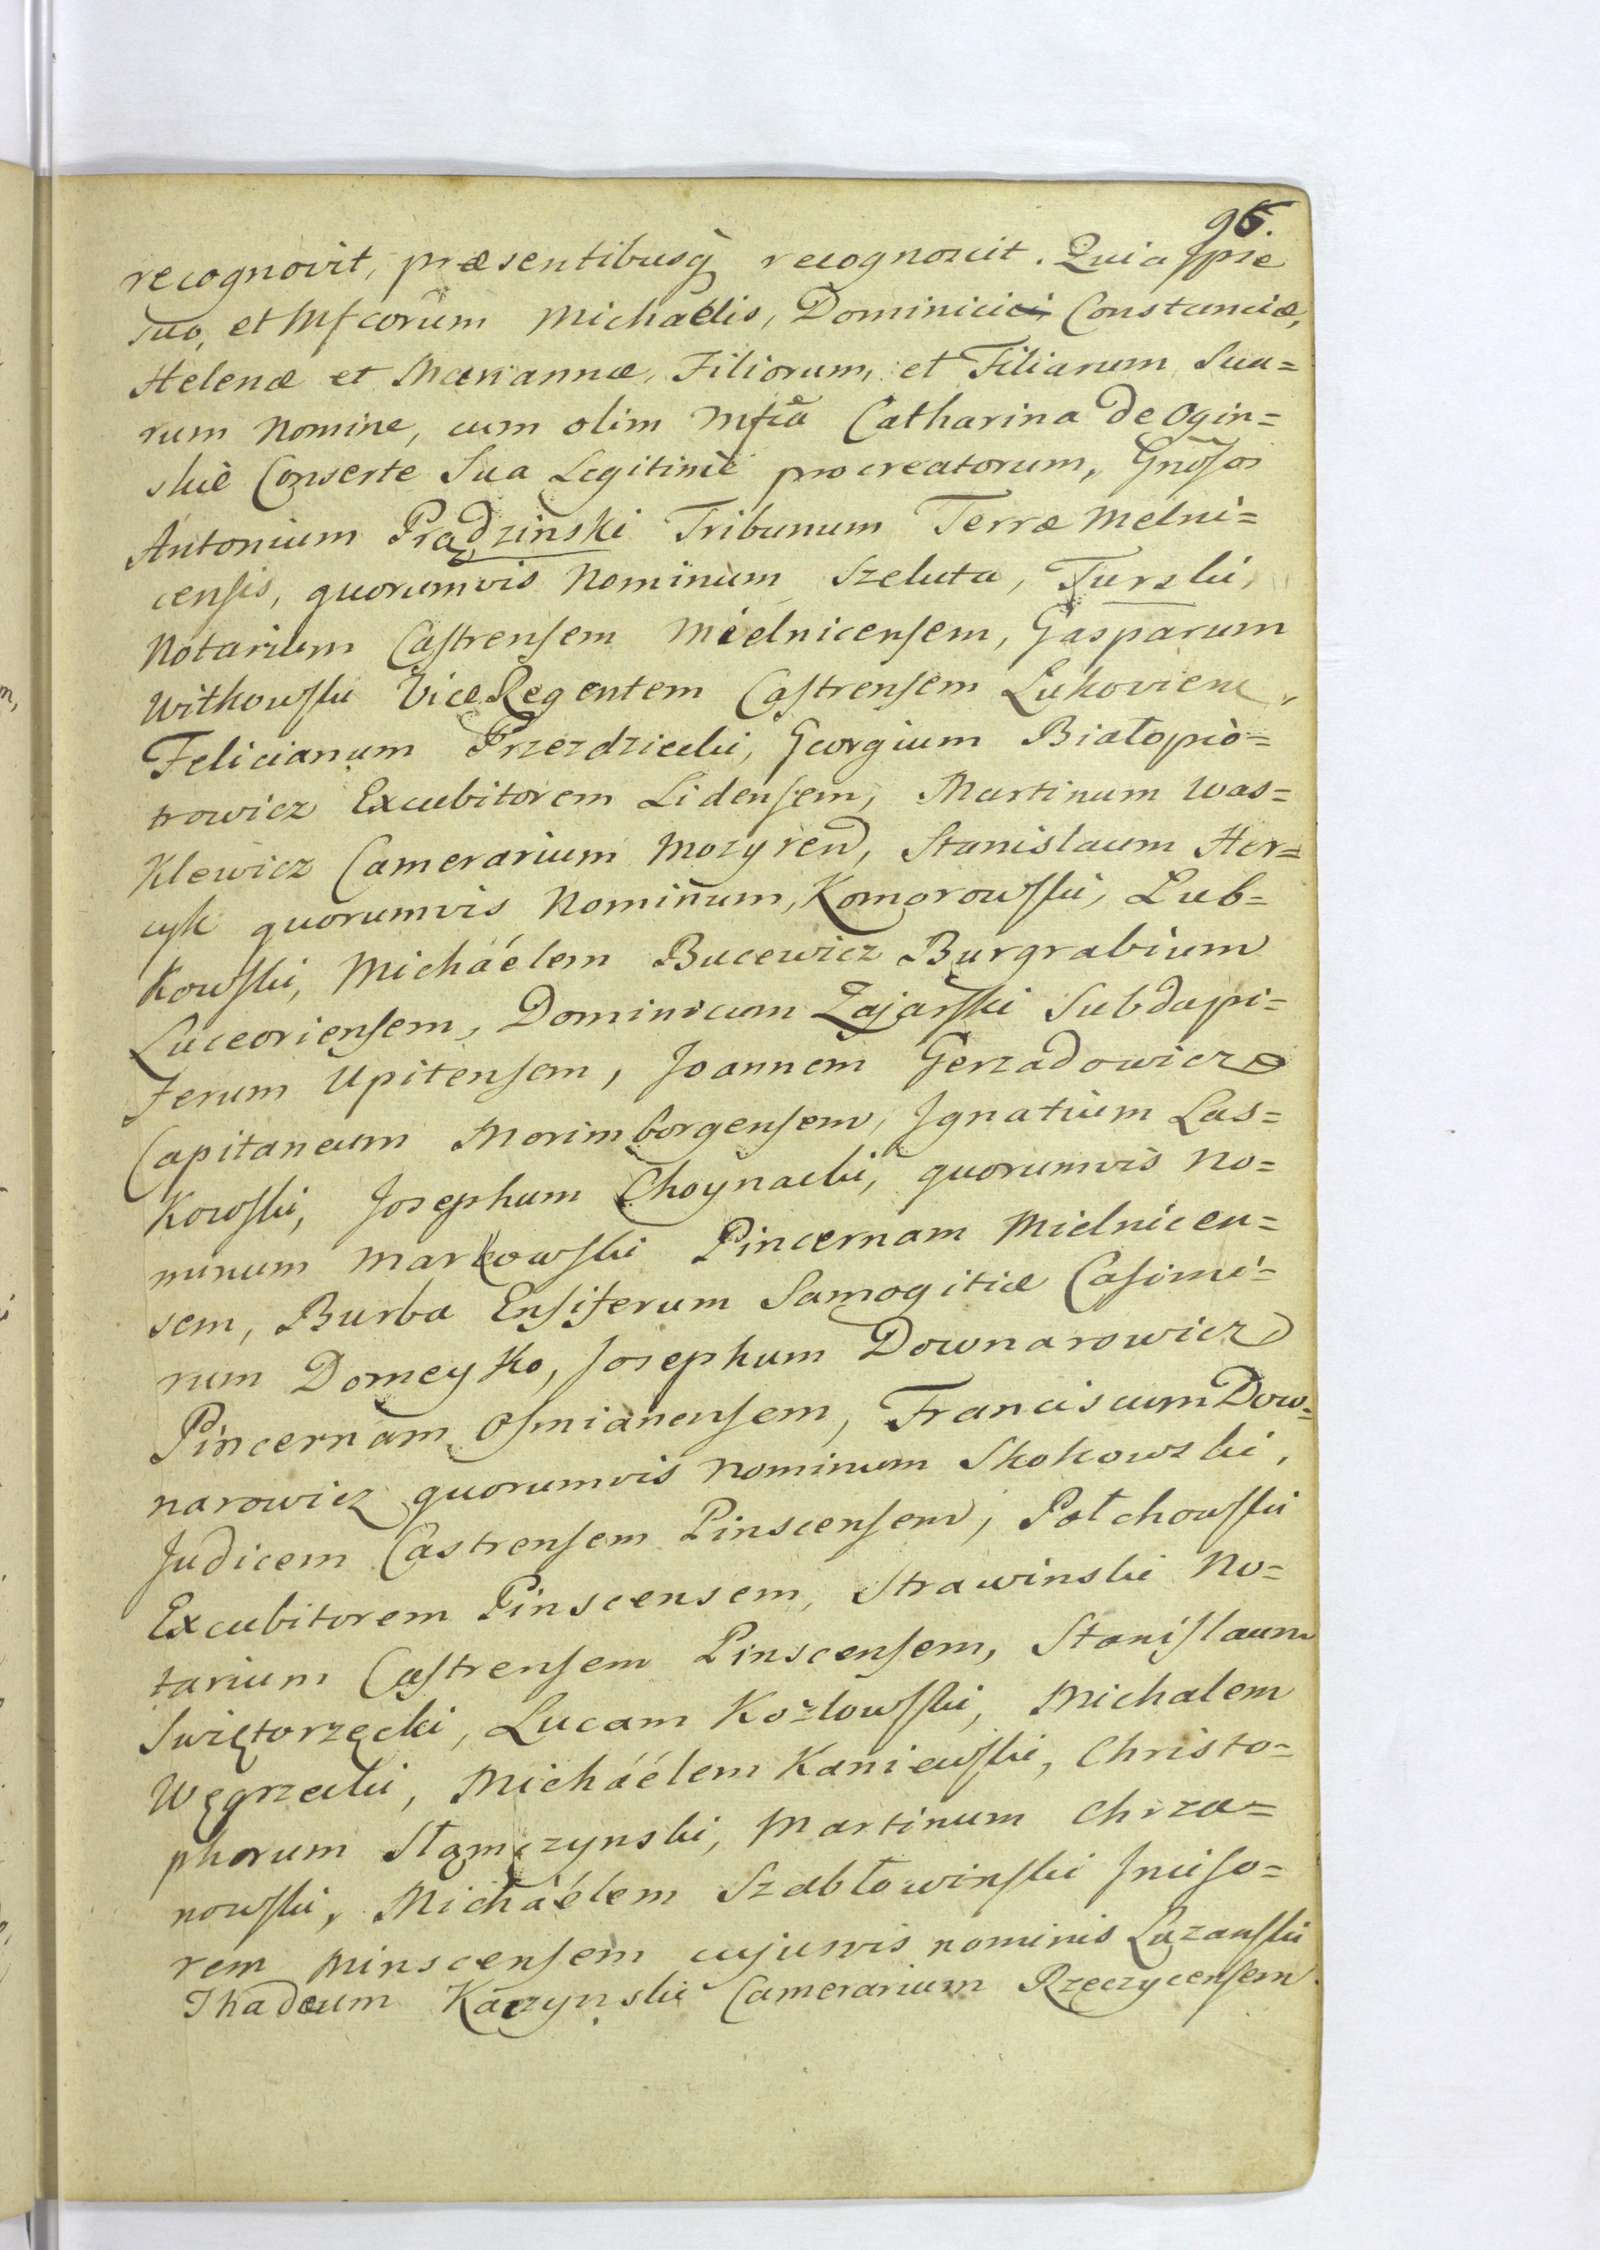 95.
recognovit, præsentibusq̀ recognoscit. Quia Ipse
suo, et Mfcorum Michaelis, Dominici Constanciæ,
Helenæ et Mariannæ, Filiorum, et Filiarum Sua=
rum Nomine, cum olim Mfca Catharina de Ogin=
skie Conserte Sua Legitimè procreatorum, Gnosos
Antonium Prądzinski Tribunum Terræ Melni=
censis, quorumvis Nominum Szeluta, Turski,
Notarium Castrensem Mielnicensem, Gasparum
Witkowski Vice Regentem Castrensem Lukoviens,
Felicianum Przezdziecki, Georgium Białopio=
trowicz Excubitorem Lidensem, Martinum Was=
klewicz Camerarium Mozyren, Stanislaum Her=
cyk quorumvis Nominum, Komorowski, Lub=
kowski, Michaélem Bucewicz Burgrabium
Luceoriensem, Dominicum Zajarski Subdapi=
ferum Upitensem, Joannem Gerzadowicz
Capitaneum Morimborgensem, Ignatium Las=
kowski, Josephum Choynacki, quorumvis No=
minum Markowski Pincernam Mielnicen=
sem, Burba Ensiferum Samogitiæ Casimi=
rum Domeyko, Josephum Downarowicz
Pincernam Osmianensem, Franciscum Dow=
narowicz quorumvis Nominum Skokowski,
Judicem Castrensem Pinscensem, Połchowski
Excubitorem Pinscensem, Strawinski No=
tarium Castrensem Pinscensem, Stanislaum
Swiętorzęcki, Lucam Kozłowski, Michalem
Węgrzecki, Michaélem Kaniewski, Christo=
phorum Słamczynski, Martinum Chrza=
nowski, Michaélem Szabłowinski Inciso=
rem Minscensem cujusvis nominis Luzanski
Thadeum Kaczynski Camerarium Rzeczycensem